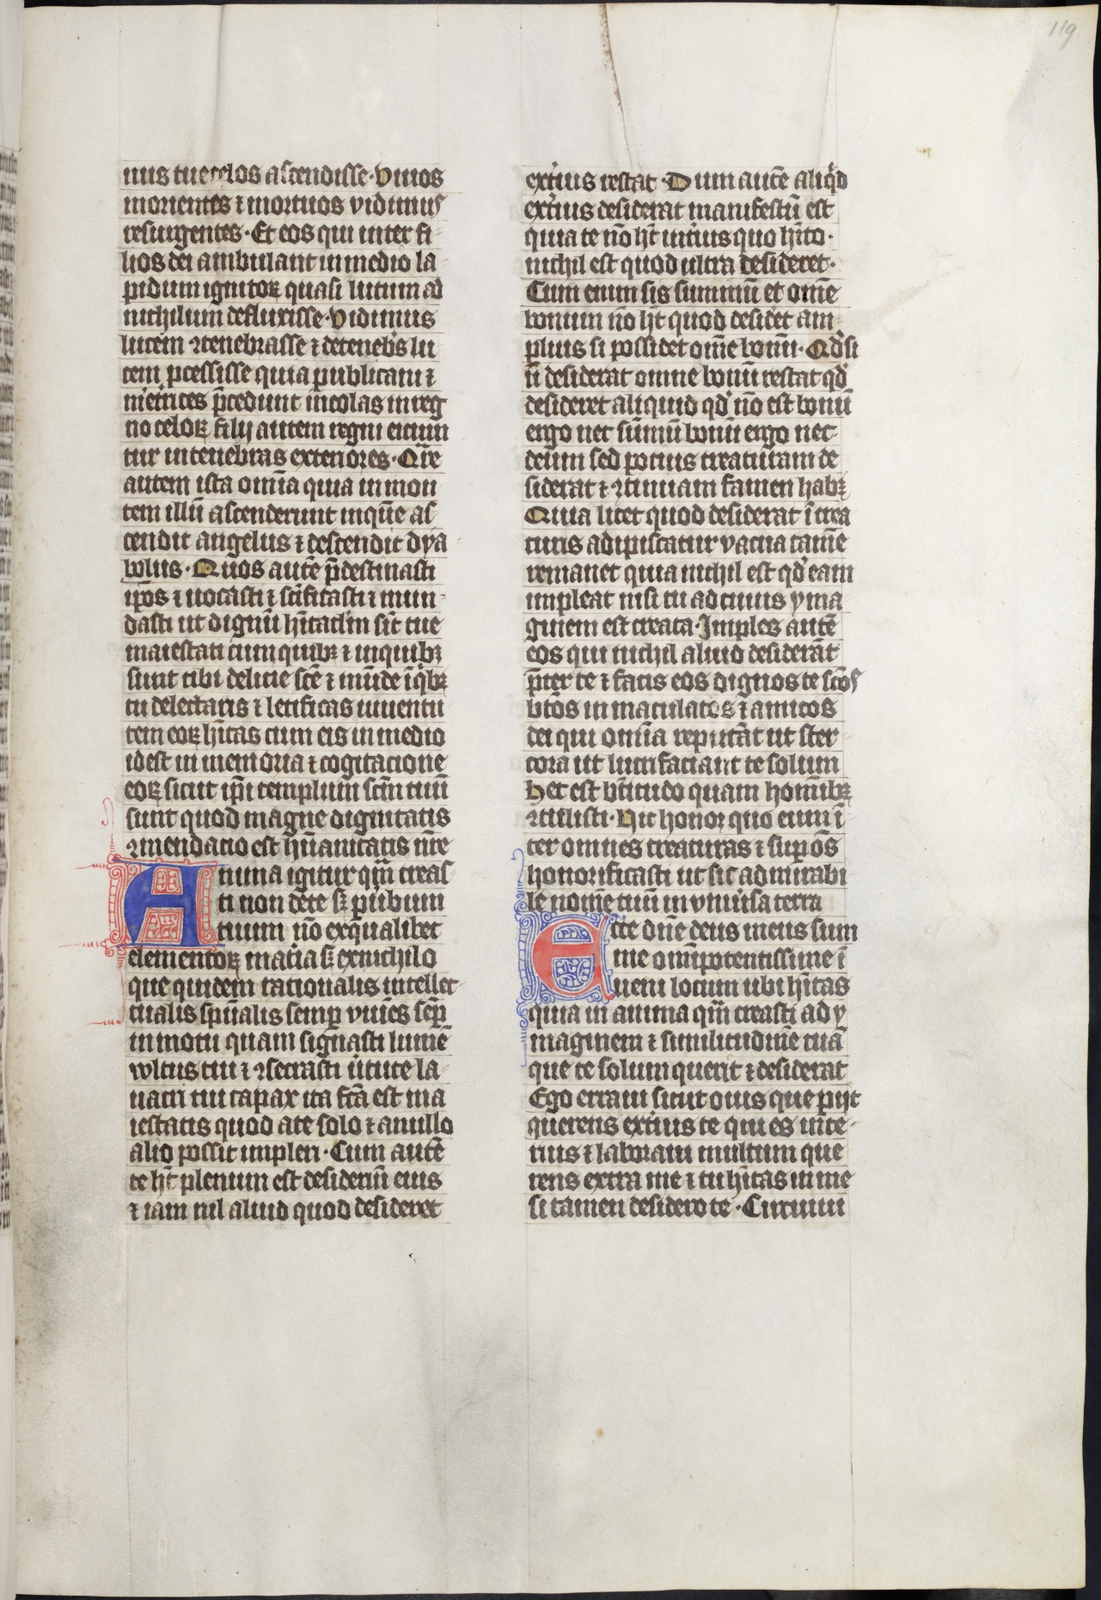 119
nus tue celos ascendisse · Viuos
morientes ⁊ mortuos vidimus
resurgentes · Et eos qui inter fi
lios dei ambulant in medio la
pidum ignitoꝝ quasi lutum ad
nichilum defluxisse · Vidimus
lucem ꝯtenebrasse ⁊ de tenebs lu
cem pcessisse quia publicani ⁊
meͥtrices p̄cedunt incolas in reg
no celoꝝ filij autem regni eiciun
tur in tenebras exteriores · Qͣre
autem ista om̄ia quia in mon
tem illū ascenderunt in quē as
cendit angelus ⁊ descendit dya
bolus · Quos autē p̄destinasti
ip̄os ⁊ uocasti ⁊ sc̄ificasti ⁊ mun
dasti ut dignū hītaclm̄ sīt tue
maiestati cum quibꝫ ⁊ in quibꝫ
sunt tibi delicie sc̄e ⁊ mūde ī qͥbꝫ
tu delectaris ⁊ letificas iuuentu
tem eoꝝ hītas cum eis in medio
id est in memoria ⁊ cogitacione
eoꝝ sicut ip̄i templum sc̄m tuū
sunt quod magne dignitatis
ꝯmendacio est hūanitatis nr̄e
Anima igitur qͣm creas
ti non de te sꝫ p uibum
tuum nō ex qualibet
elementoꝝ mat̓ia sꝫ ex nichilo
que quidem racionalis intellec
tualis spūalis semp viuēs semp̄
in motu quam signasti lumīe
wltus tui ⁊ ꝯsecrasti ūtute la
uacri tui capax ita fc̄a est ma
iestatis quod a te solo ⁊ a nullo
alio possit impleri · Cum autē
te ht̄ plenum est desideriū eius
⁊ iam nil aliud quod desideret
ext̓ius restat · Dum autē aliqͥd
ext̓ius desiderat manifestū est
quia te nō ht̄ int̓ius quo hīto ·
nichil est quod ultra desideret ·
Cum enim sis summū et om̄e
bonum nō ht̄ quod desid̓et am
plius si possidet om̄e bonū · Qd̓ si
n̄ desiderat omne bonū restat qd̓
desideret aliquid qd̓ nō est bonū
ergo nec sūmū bonū ergo nec
deum sed pocius creaturam de
siderat ⁊ ꝯtinuam famen habꝫ
Quia licet quod desiderat ī crea
turis adipiscatur vacua tamē
remanet quia nichil est qd̓ eam
impleat nisi tu ad cuius yma
ginem est creata · Imples autē
eos qui nichil aliud desiderāt
p̄ter te ⁊ facis eos dignos te sc̄os
btōs inmaculatos ⁊ amicos
dei qui om̄ia reputāt ut ster
cora ut lucrifaciant te solum
Hec est btītudo quam homībꝫ
ꝯtulisti · Hic honor quo eum ī
ter omnes creaturas ⁊ sup om̄s
honorificasti ut sit admirabi
le nomē tuū in vniu̓sa terra
Ecce dn̄e deus meus sum
me om̄ipotentissime ī
ueni locum ubi hītas
quia in anima qͣm creasti ad y
maginem ⁊ similitudinē tuā
que te solum querit ⁊ desiderat
Ego erraui sicut ouis que pijt
querens ext̓ius te qui es inte
rius ⁊ laboraui multum que
rens extra me ⁊ tu hītas in me
si tamen desidero te · Circuiui